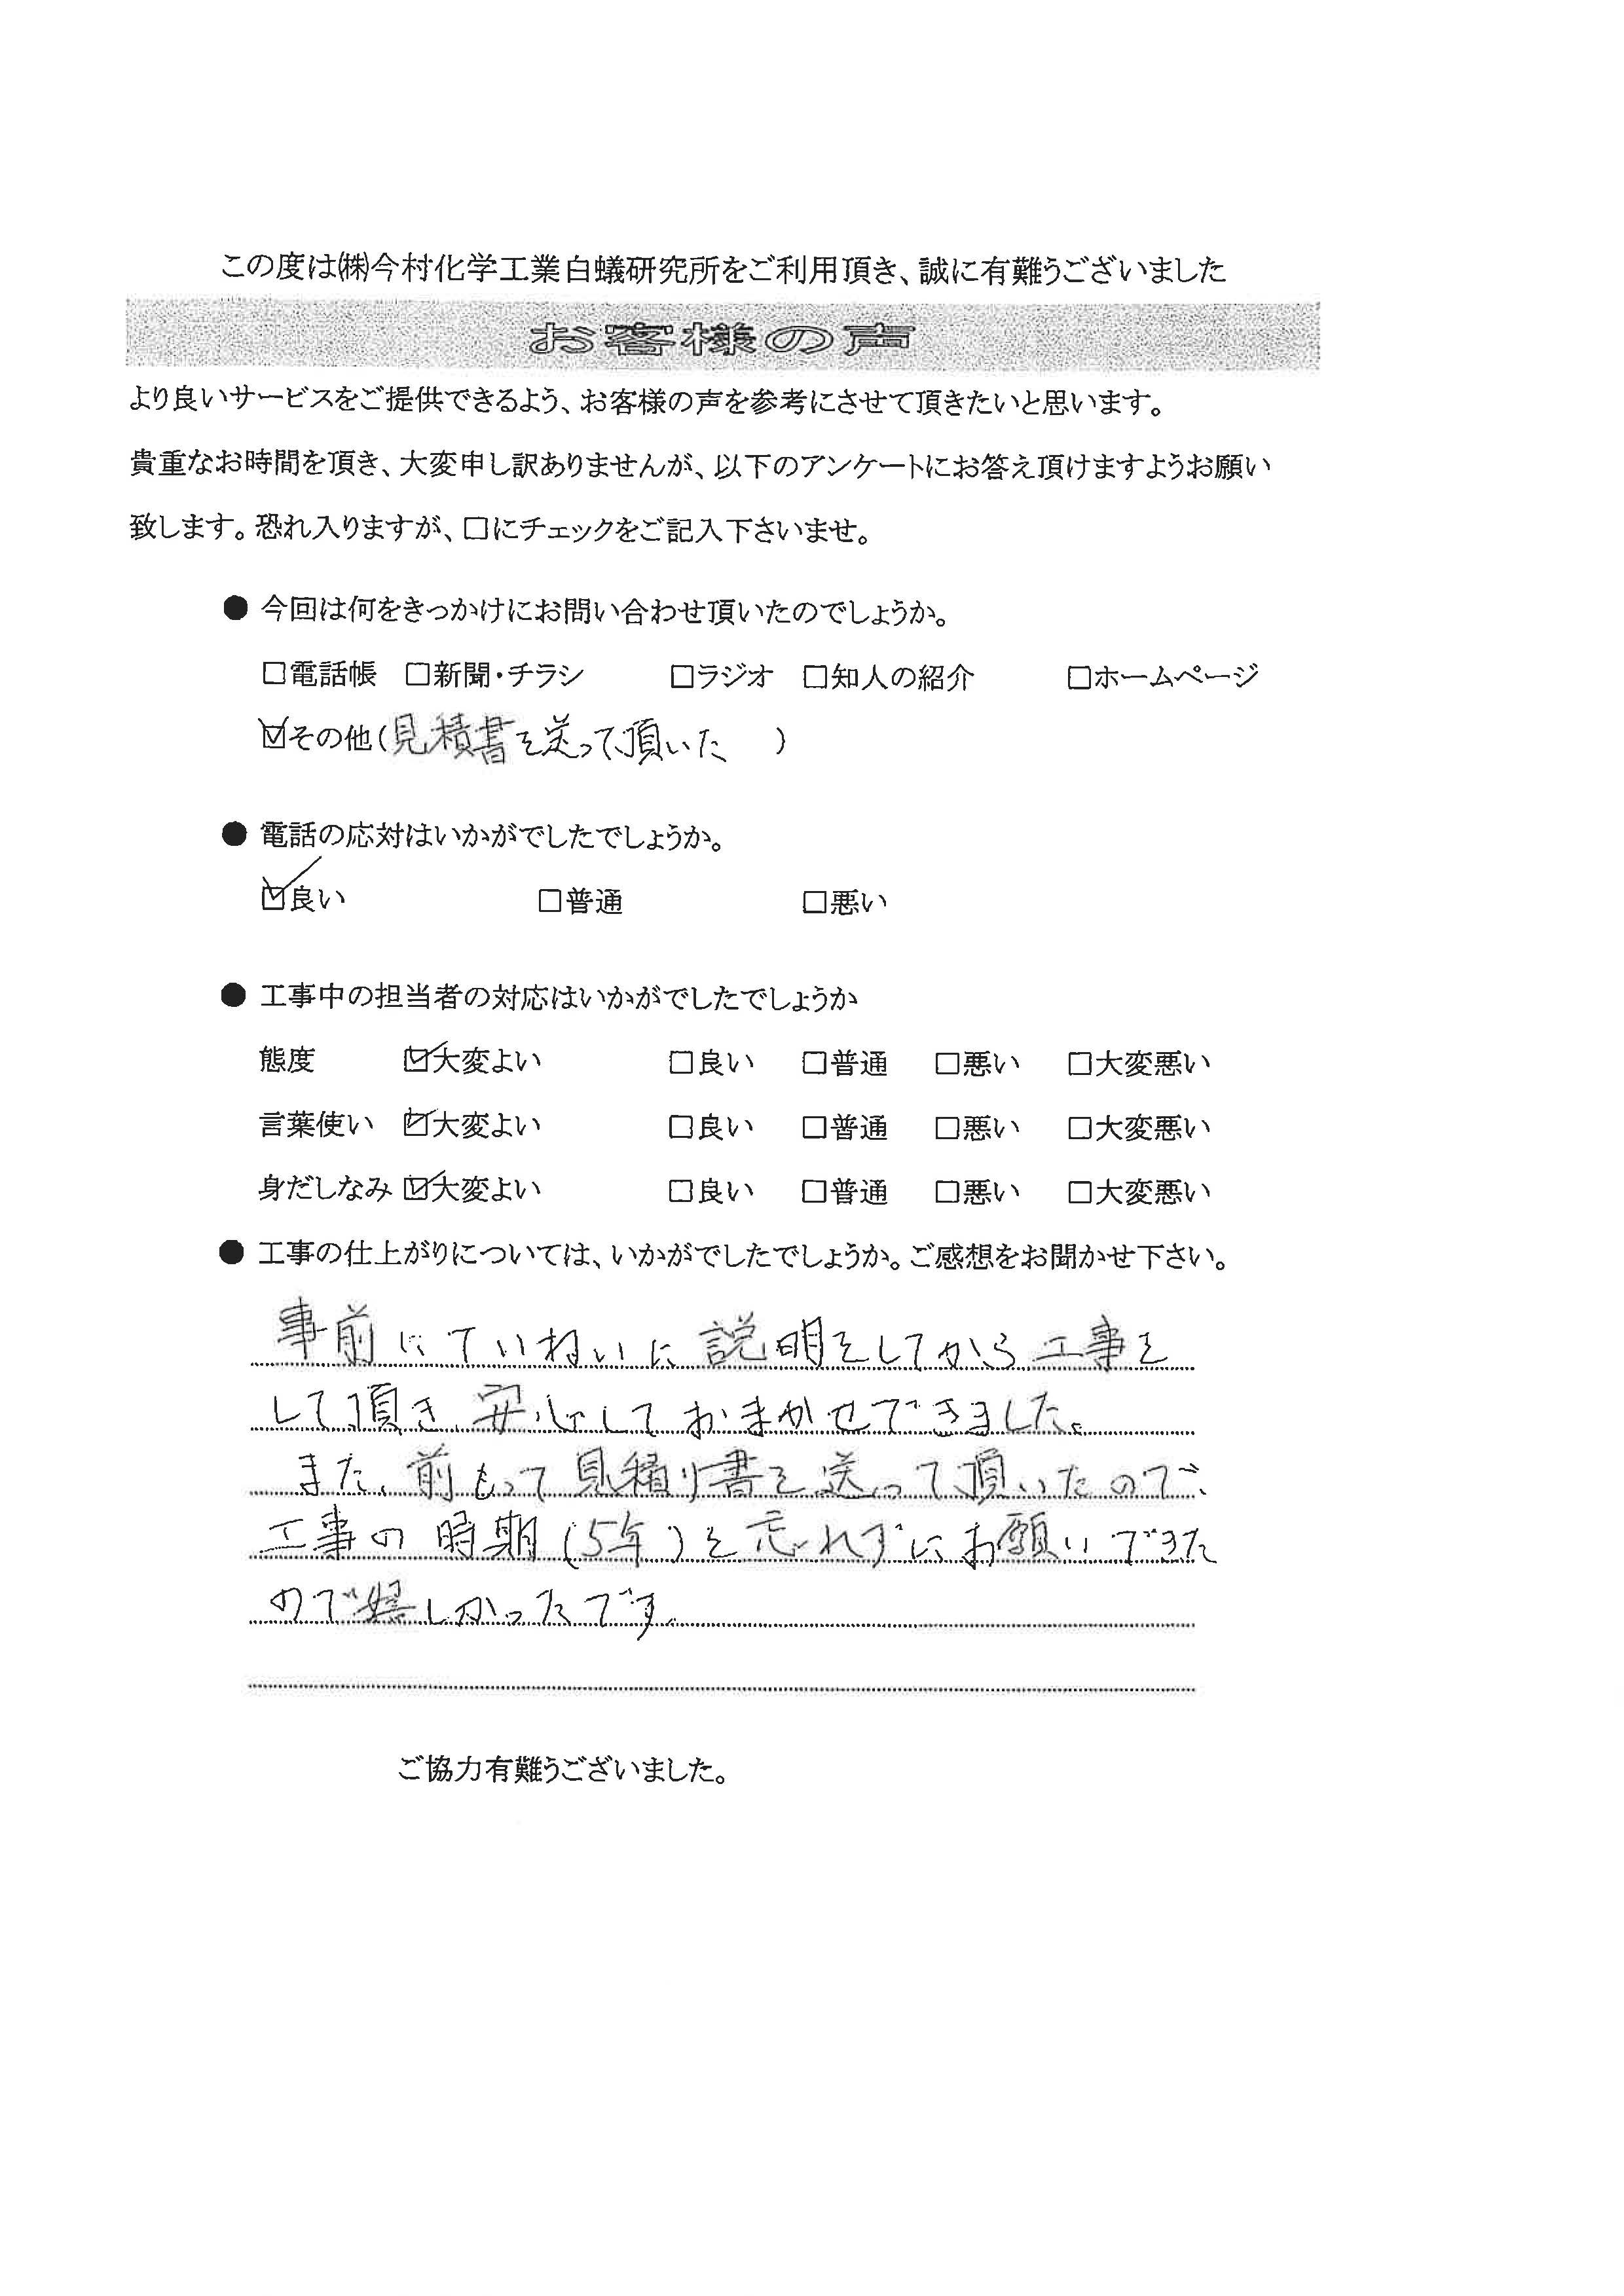 この度は㈱今村化学工業白蟻研究所をご利用頂き、誠に有難うございました
お客様の声
より良いサービスをご提供できるよう、お客様の声を参考にさせて頂きたいと思います。
貴重なお時間を頂き、大変申し訳ありませんが、以下のアンケートにお答え頂けますようお願い
致します。恐れ入りますが、□にチェックをご記入下さいませ。
● 今回は何をきっかけにお問い合わせ頂いたのでしょうか。
□電話帳 □新聞・チラシ □ラジオ □知人の紹介 □ホームページ
☑その他(見積書を送って頂いた )
● 電話の応対はいかがでしたでしょうか。
☑良い □普通 □悪い
● 工事中の担当者の対応はいかがでしたでしょうか
態度 ☑大変よい □良い □普通 □悪い □大変悪い
言葉使い ☑大変よい □良い □普通 □悪い □大変悪い
身だしなみ ☑大変よい □良い □普通 □悪い □大変悪い
● 工事の仕上がりについては、いかがでしたでしょうか。ご感想をお聞かせ下さい。
事前にていねいに説明をしてから工事を
して頂き、安心しておまかせできました。
また、前もって見積り書を送って頂いたので、
工事の時期(5年)を忘れずにお願いできた
ので嬉しかったです。
ご協力有難うございました。